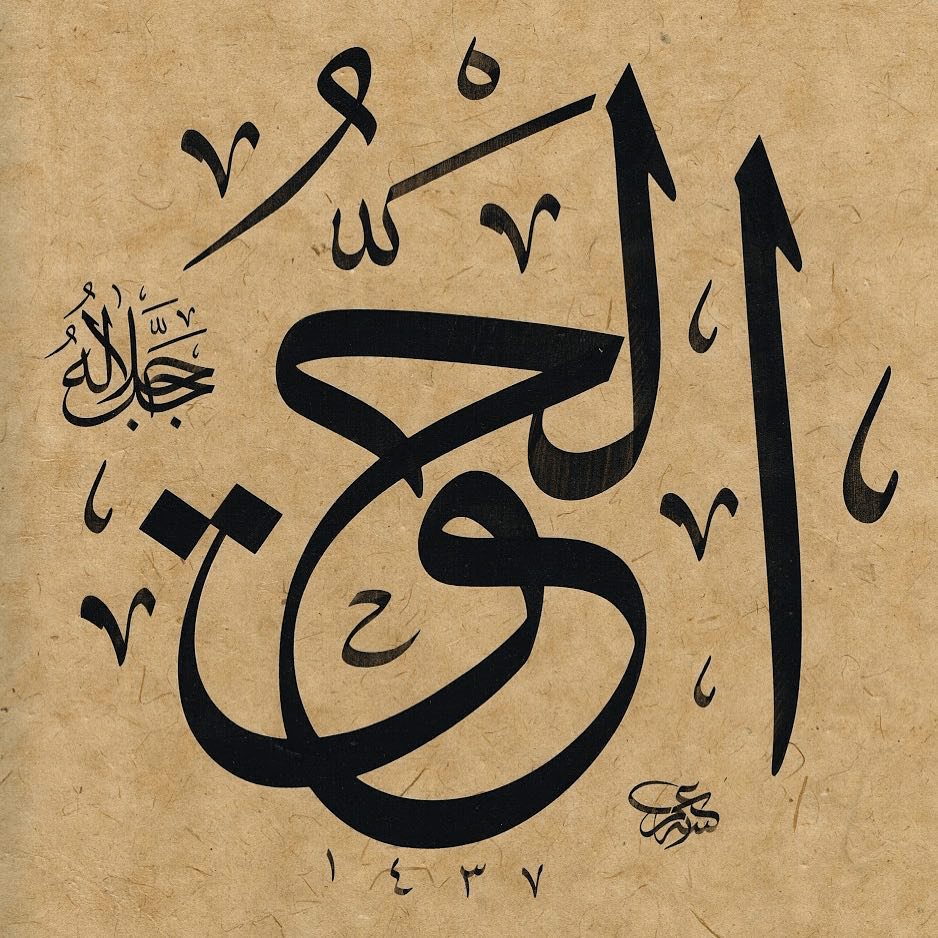 الْحَقُّ
جَلَّ جَلَالُهُ
١٤٣٧